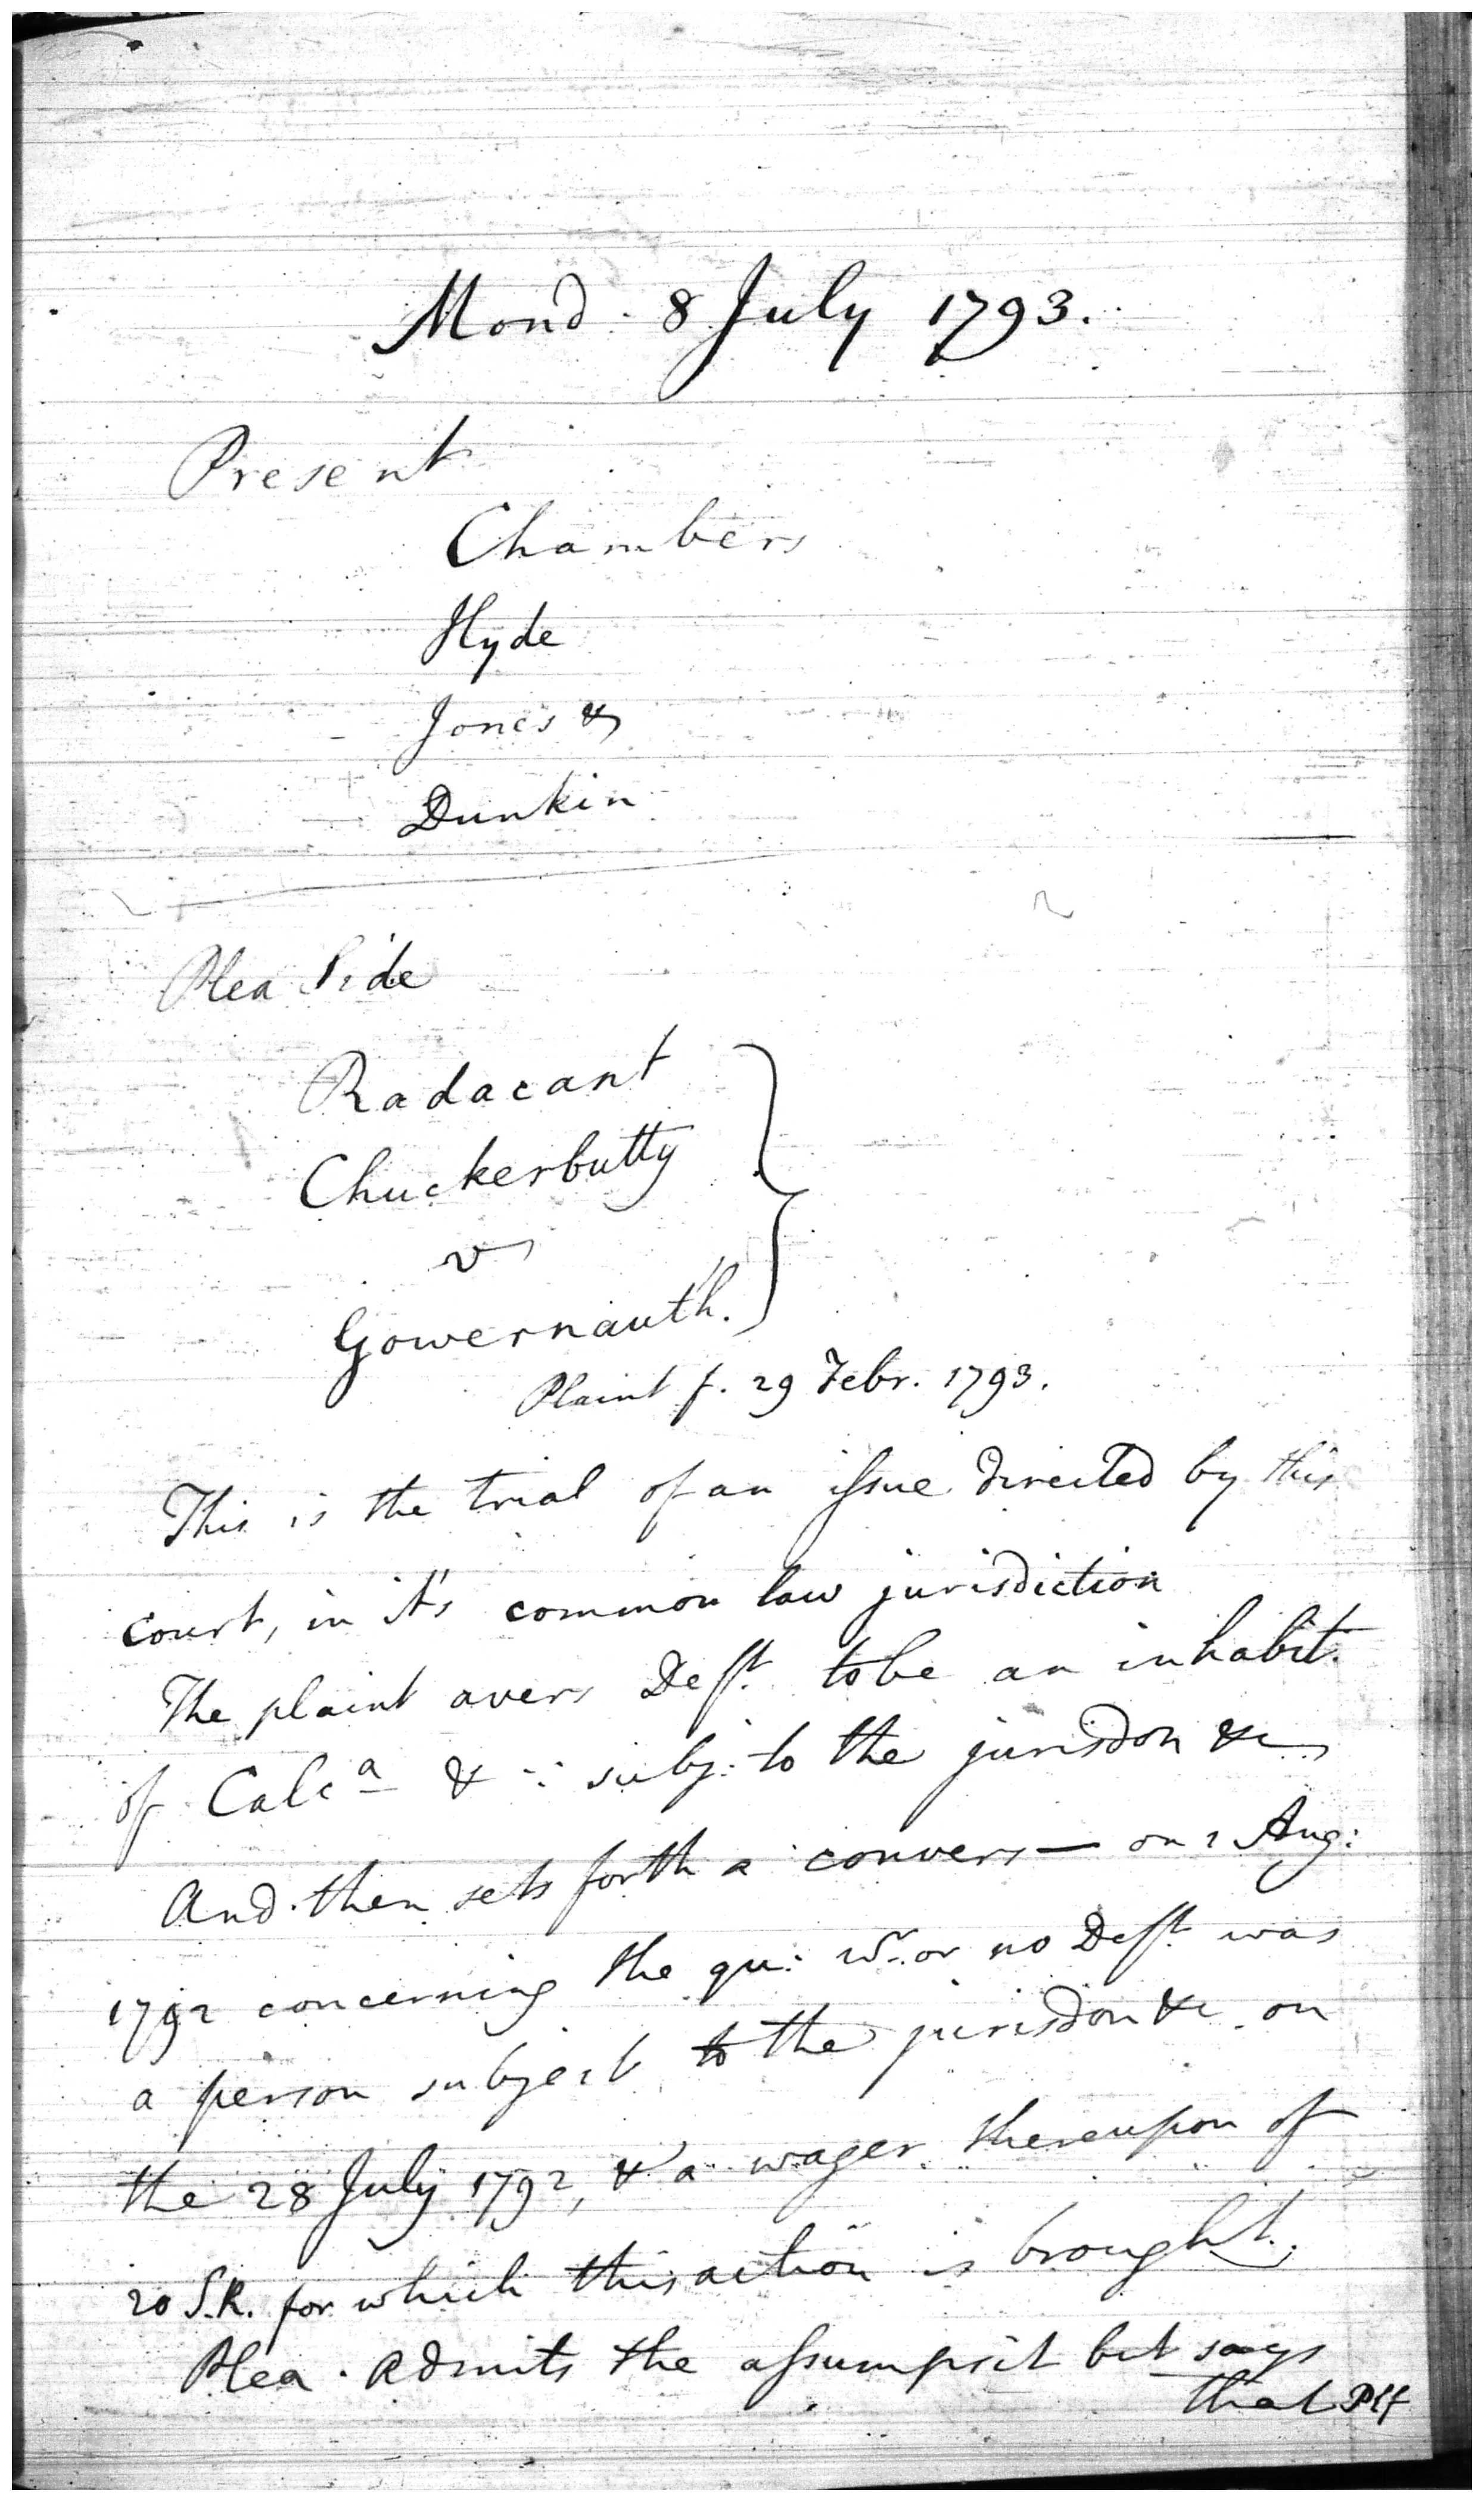 Mond. 8 July 1793.
Present
Chambers
Hyde
Jones &
Dunkin
Plea Side
Radacant
Chuckerbutty
v
Gowernauth.
Plaint f. 29 Febr. 1793.
This is the trial of an issue directed by this
court, in it's common law jurisdiction
The plaint avers Deft. to be an inhabit.
of Calca & ∵ subj: to the jurisdon &c
And then sets forth a convers— on 2 Aug:
1792 concerning the qu: wr. or no Deft. was
a person subject to the jurisdon &c on
the 28 July 1792, & a wager thereupon of
20 S.R. for which this action is brought.
Plea. Admits the assumpsit but says
that Plf